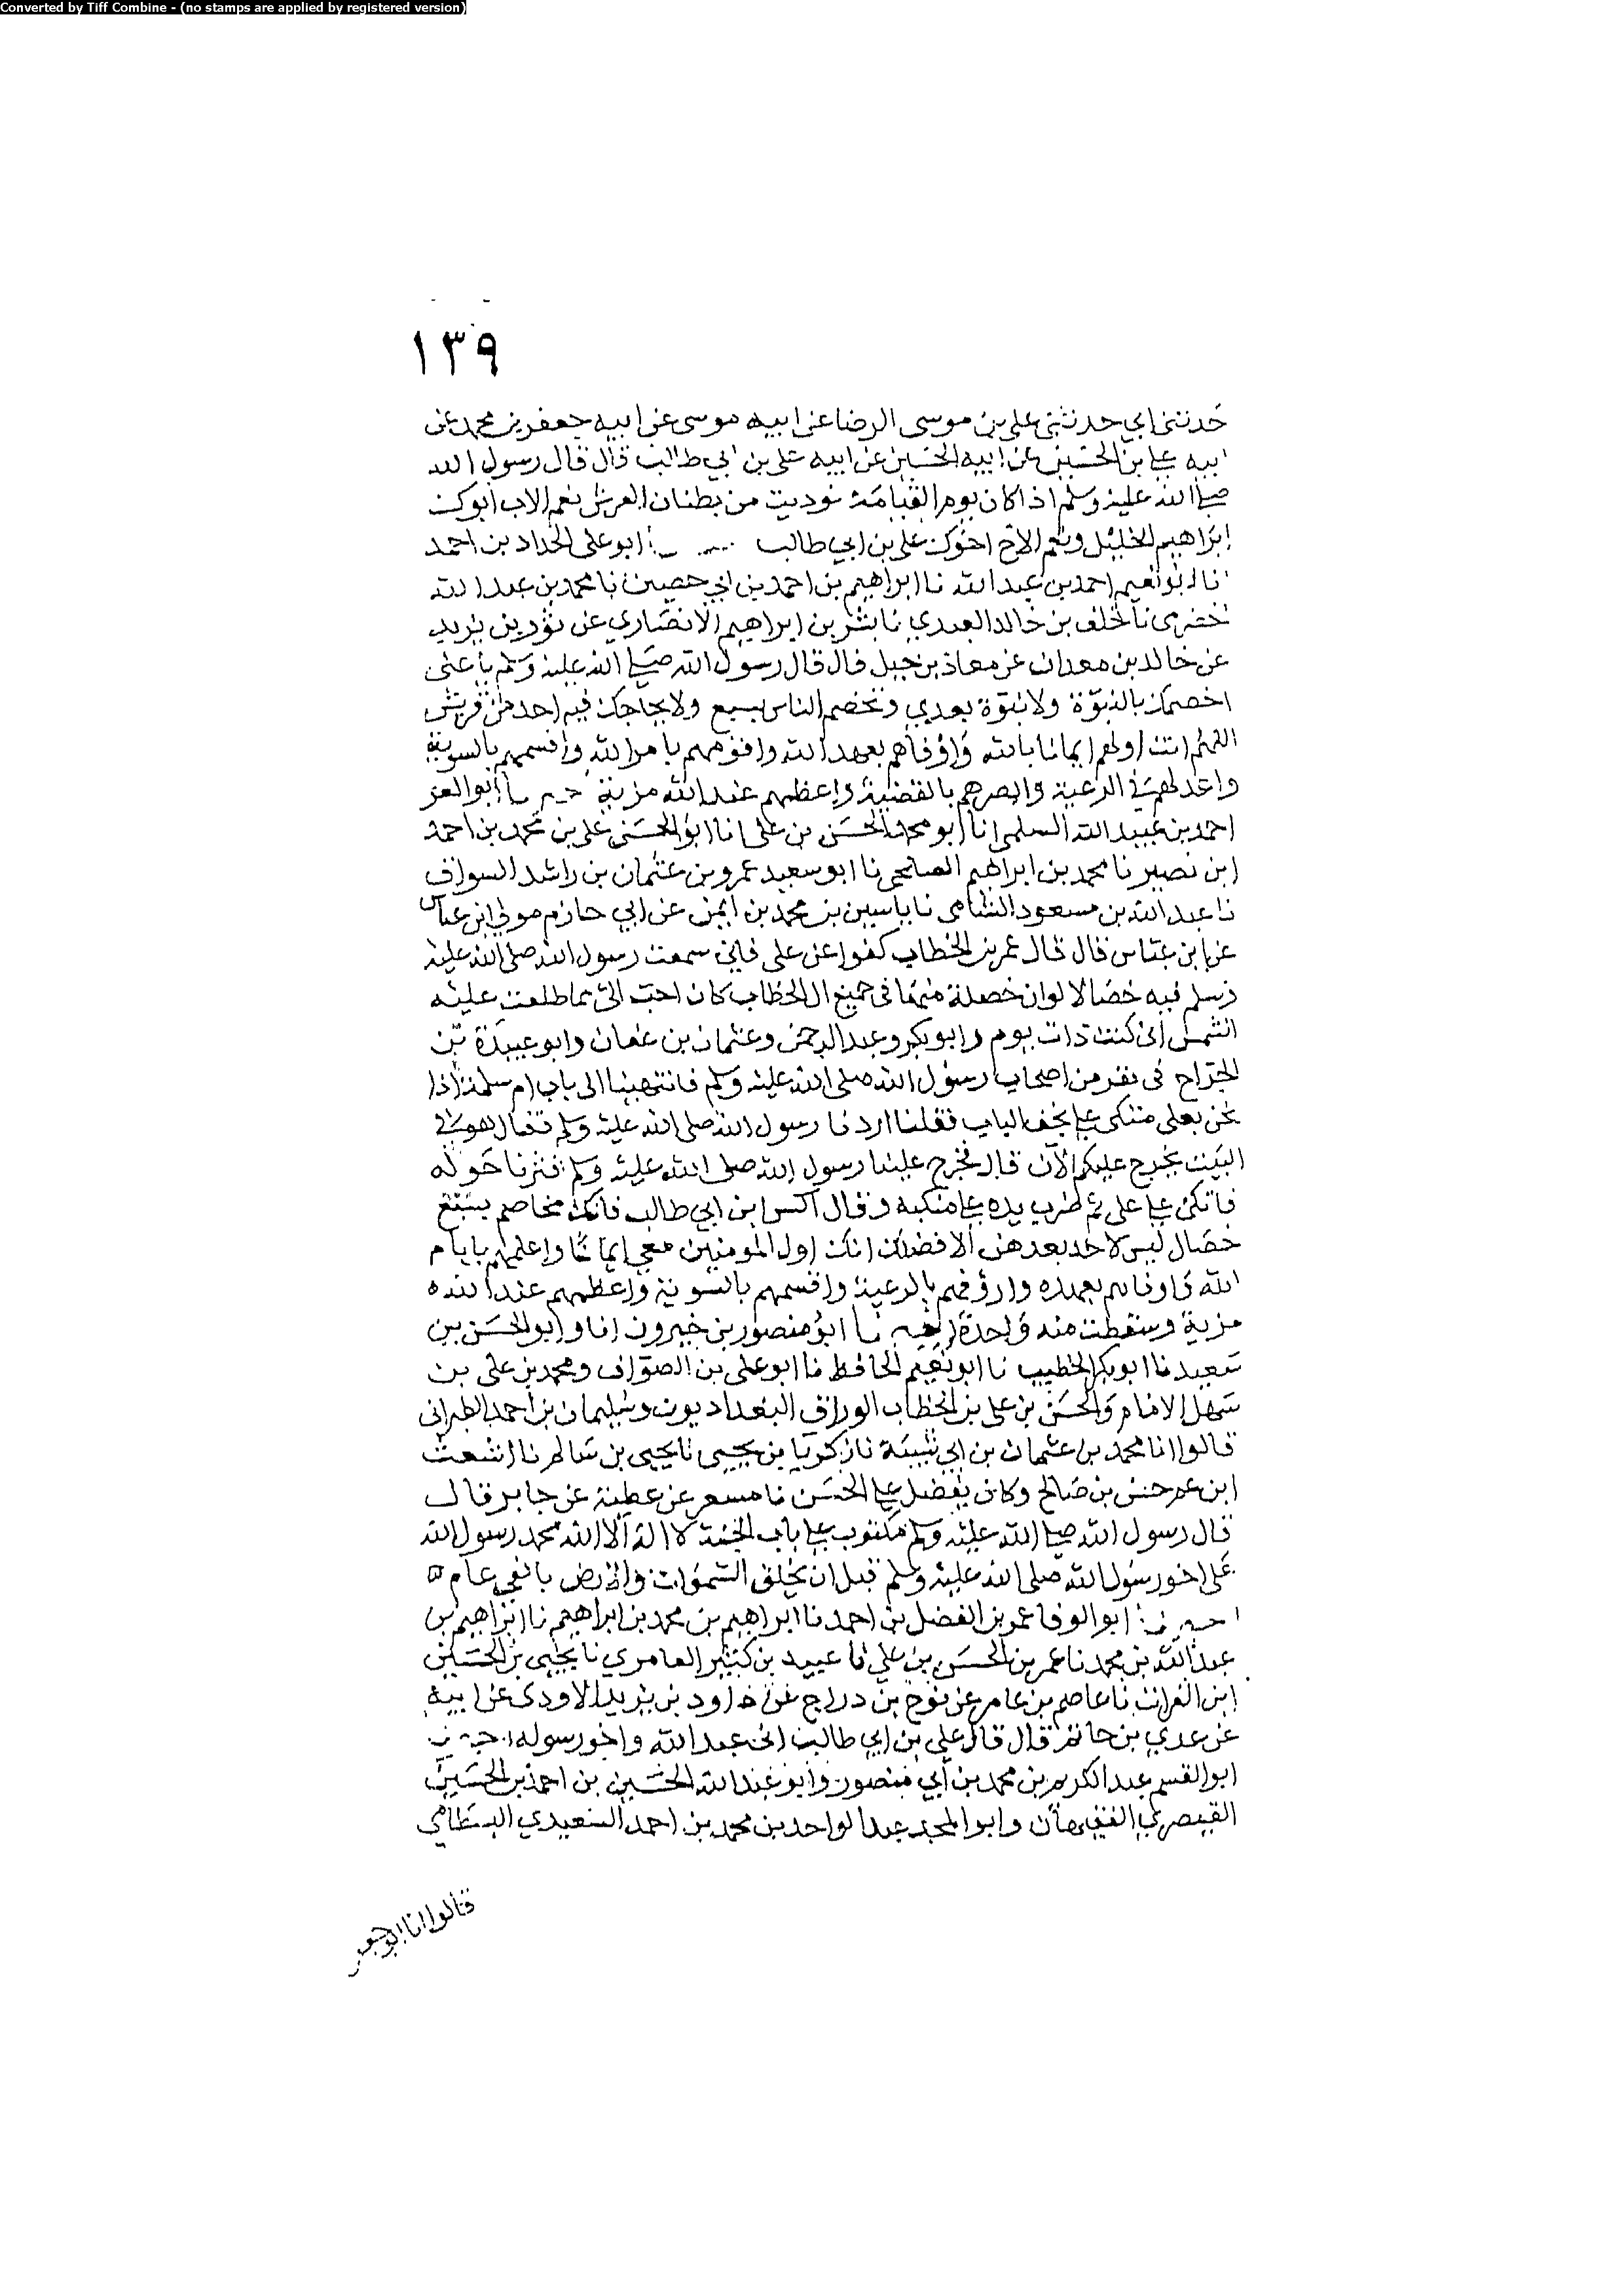 Converted by Tiff Combine - (no stamps are applied by registered version)
١٣٩
حدثني ابي حدثني علي بن موسى الرضا عن ابيه موسى عن ابيه جعفر بن محمد عن
ابيه علي بن الحسين عن ابيه الحسين عن ابيه علي بن ابي طالب قال قال رسول الله
صلى الله عليه وسلم اذا كان يوم القيامة نوديت من بطنان العرش نعم الاب ابوك
ابراهيم الخليل ونعم الاخ اخوك علي بن ابي طالب ابو علي الحداد بن احمد
انا ابو نعيم احمد بن عبد الله نا ابراهيم بن احمد بن ابي حصين نا محمد بن عبد الله
نا خلف بن خالد العبدي نا بشر بن ابراهيم الانصاري عن ثور بن يزيد
عن خالد بن معدان عن معاذ بن جبل قال قال رسول الله صلى الله عليه وسلم يا علي
اخصمك بالنبوة ولا نبوة بعدي وتخصم الناس بسبع ولا يحاجك فيه احد من قريش
انت اولهم ايمانا بالله واوفاهم بعهد الله واقومهم بامر الله واقسمهم بالسوية
واعدلهم في الرعية وابصرهم بالقضية واعظمهم عند الله مزية ابو العز
احمد بن عبيد الله السلمي انا ابو محمد الحسن بن علي انا ابو الحسن علي بن محمد بن احمد
ابن نصير نا محمد بن ابراهيم نا ابو سعيد عمرو بن عثمان بن راشد السواق
نا عبد الله بن مسعود الشامي نا ياسين بن محمد بن ايمن عن ابي حازم مولى ابن عباس
عن ابن عباس قال قال عمر بن الخطاب كفوا عن علي فاني سمعت رسول الله صلى الله عليه
وسلم فيه خصالا لو ان خصلة منها في جميع ال الخطاب كان احب الي مما طلعت عليه
الشمس اني كنت ذات يوم وابو بكر وعبد الرحمن وعثمان بن عفان وابو عبيدة بن
الجراح في نفر من اصحاب رسول الله صلى الله عليه وسلم فانتهينا الى باب ام سلمة اذا
نحن بعلي متكى على نجف الباب فقلنا اردنا رسول الله صلى الله عليه وسلم فقال هو في
البيت يخرج عليكم الآن قال فخرج علينا رسول الله صلى الله عليه وسلم فثرنا حوله
فاتكى على علي ثم ضرب يده على منكبه وقال اكس ابن ابي طالب فانك مخاصم بسبع
خصال ليس لاحد بعدهن الا فضلك انك اول المومنين معي ايمانا واعلمهم بايام
الله واوفاهم بعهده وارؤفهم بالرعية واقسمهم بالسوية واعظمهم عند الله ه
مزية وسقطت منه واحدة نا ابو منصور بن خيرون انا وابو الحسن بن
سعيد نا ابو بكر الخطيب نا ابو نعيم الحافظ نا ابو علي بن الصواف ومحمد بن علي بن
سهل الامام والحسن بن علي بن الخطاب الوراق البغداديون وسليمان بن احمد الطبراني
قالوا انا محمد بن عثمان بن ابي شيبة نا زكريا بن يحيى نا يحيى بن سالم نا اشعث
ابن عم حسن بن صالح وكان يفضل على الحسن نا مسعر عن عطية عن جابر قال
قال رسول الله صلى الله عليه وسلم مكتوب على باب الجنة لا اله الا الله محمد رسول الله
علي اخو رسول الله صلى الله عليه وسلم قبل ان يخلق السموات والارض بالفي عام ه
ابو الوفا عمر بن الفضل بن احمد نا ابراهيم بن محمد بن ابراهيم نا ابراهيم بن
عبد الله بن محمد نا عمر بن الحسن بن علي نا عبيد بن كثير العامري نا يحيى بن الحسين
ابن الفرات نا عاصم بن عامر عن نوح بن دراج عن داود بن يزيد الاودي عن ابيه
عن عدي بن حاتم قال قال علي بن ابي طالب اني عبد الله واخو رسوله
ابو القسم عبد الكريم بن محمد بن ابي منصور وابو عبد الله الحسين بن احمد بن الحسين
الفقيهان وابو المجد عبد الواحد بن محمد بن احمد البسطامي
قالوا انا ابو جعفر